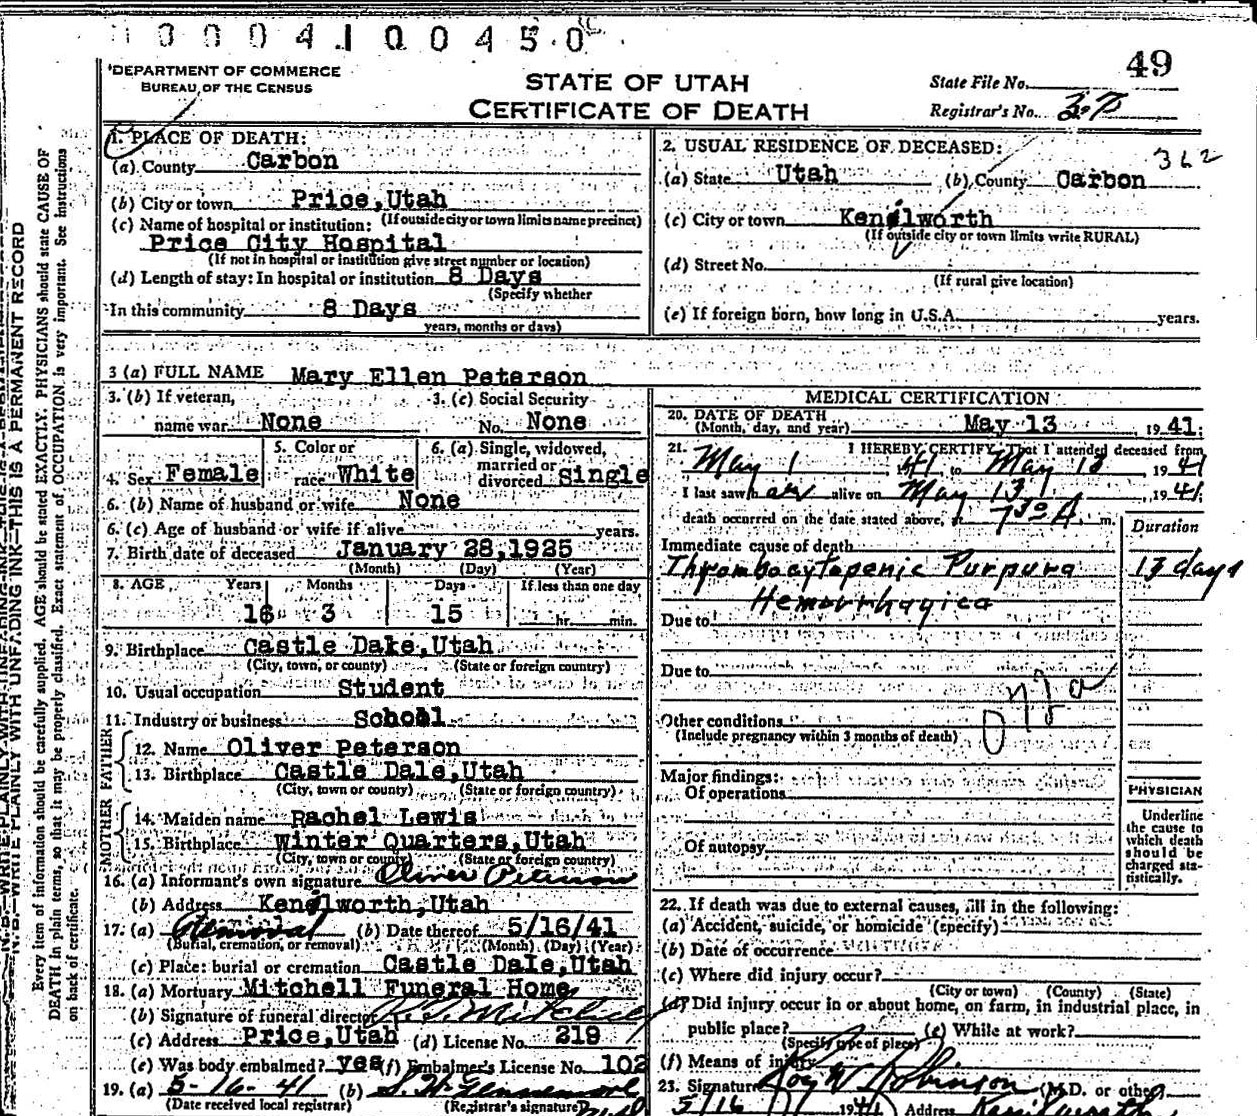 0004100450
49
DEPARTMENT OF COMMERCE
BUREAU OF THE CENSUS
STATE OF UTAH
CERTIFICATE OF DEATH
State File No.
Registrar's No. 37
1. PLACE OF DEATH:
(a) County Carbon
(b) City or town Price, Utah
(If outside city or town limits name precinct)
(c) Name of hospital or institution:
Price City Hospital
(If not in hospital or institution give street number or location)
(d) Length of stay: In hospital or institution 8 Days
(Specify whether
In this community 8 Days
years, months or days)
2. USUAL RESIDENCE OF DECEASED:
362
(a) State Utah (b) County Carbon
(c) City or town Kenilworth
(If outside city or town limits write RURAL)
(d) Street No.
(If rural give location)
(e) If foreign born, how long in U.S.A. years.
3 (a) FULL NAME Mary Ellen Peterson
3. (b) If veteran, name war None
3. (c) Social Security No. None
4. Sex Female
5. Color or race White
6. (a) Single, widowed, married or divorced Single
6. (b) Name of husband or wife None
6. (c) Age of husband or wife if alive years.
7. Birth date of deceased January 28, 1925
(Month) (Day) (Year)
8. AGE Years Months Days If less than one day
16 3 15 hr. min.
9. Birthplace Castle Dake, Utah
(City, town, or county) (State or foreign country)
10. Usual occupation Student
11. Industry or business School
FATHER
12. Name Oliver Peterson
13. Birthplace Castle Dale, Utah
(City, town or county) (State or foreign country)
MOTHER
14. Maiden name Rachel Lewis
15. Birthplace Winter Quarters, Utah
(City, town or county) (State or foreign country)
16. (a) Informant's own signature Oliver Peterson
(b) Address Kenilworth, Utah
17. (a) Removal (b) Date thereof 5/16/41
(Burial, cremation, or removal) (Month) (Day) (Year)
(c) Place: burial or cremation Castle Dale, Utah
18. (a) Mortuary Mitchell Funeral Home
(b) Signature of funeral director Mitchell
(c) Address Price, Utah (d) License No. 219
(e) Was body embalmed? yes (f) Embalmer's License No. 102
19. (a) 5-16-41 (b)
(Date received local registrar) (Registrar's signature)
MEDICAL CERTIFICATION
20. DATE OF DEATH
(Month, day, and year) May 13 1941
21. I HEREBY CERTIFY, That I attended deceased from
May 1 41 to May 13 1941
I last saw her alive on May 13 1941
death occurred on the date stated above, at 7 30 A. m.
Duration
Immediate cause of death
Thrombocytopenic Purpura 13 days
Hemorrhagica
Due to
Due to
Other conditions
(Include pregnancy within 3 months of death)
Major findings:
Of operations
Of autopsy
PHYSICIAN
Underline
the cause to
which death
should be
charged sta-
tistically.
22. If death was due to external causes, fill in the following:
(a) Accident, suicide, or homicide (specify)
(b) Date of occurrence
(c) Where did injury occur?
(City or town) (County) (State)
(d) Did injury occur in or about home, on farm, in industrial place, in
public place? (e) While at work?
(Specify type of place)
(f) Means of injury
23. Signature Roy W Robinson (M.D. or other)
5/16 1941 Address Kenilworth
N.B.—WRITE PLAINLY WITH UNFADING INK—THIS IS A PERMANENT RECORD
Every item of information should be carefully supplied. AGE should be stated EXACTLY. PHYSICIANS should state CAUSE OF
DEATH in plain terms, so that it may be properly classified. Exact statement of OCCUPATION is very important. See instructions
on back of certificate.